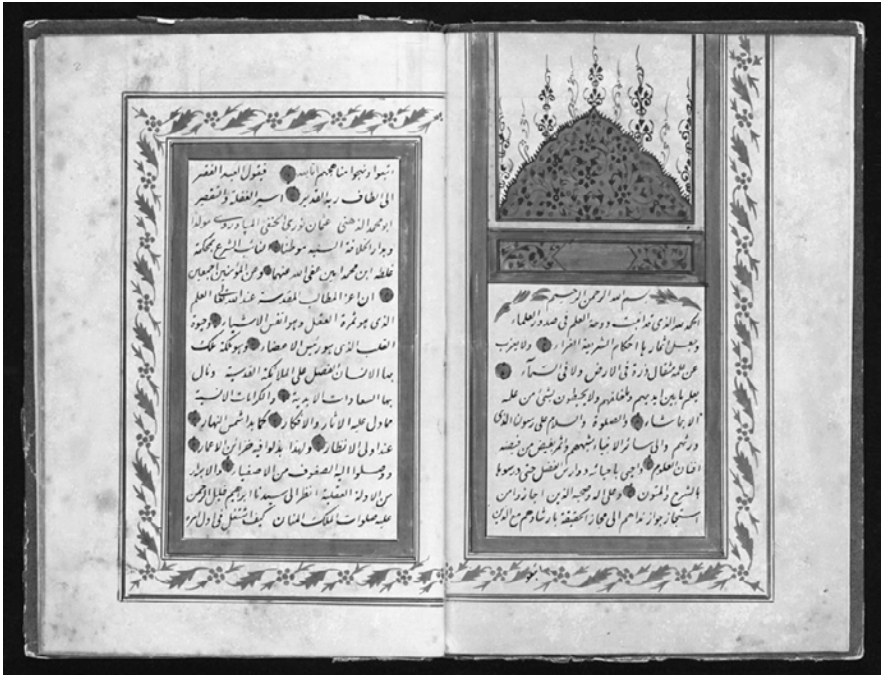 بسم الله الرحمن الرحيم
الحمد لله الذى قد انبت دوحة العلم فى صدور العلماء
وجعل اثمارها احكام الشريعة الغراء ولا يعزب
عن علمه مثقال ذرة فى الارض ولا فى السمآء
يعلم ما بين ايديهم وما خلفهم ولا يحيطون بشئ من علمه
الا بما شاء والصلوة والسلام على رسولنا الذى
ورثهم والى سائر الانبياء شبههم وأثمر بفيض من فيضه
افنان العلوم واحيى باحيائه دوارس الفضل حتى درسوها
بالشرح والمتون وعلى اله وصحبه الذين اجازوا من
استجاز جوازندا هم الى مجاز الحقيقة بارشادهم مع الذين
اتبعوا
اتبعوا ونهجوا مناهجهم فيقول العبد الفقير
الى الطاف ربه القدير اسير الغفلة والتقصير
ابو محمد الذهنى عثمان نورى الحنفى مولدا
وبدار الخلافة السنيه موطنا النائب الشرع بمحكمة
غلطه ابن محمد امين عفى الله عنهما وعن المؤمنين اجمعين
ان اعز المطالب المقدسة عند الله تعالى العلم
الذى هو ثمرة العقل وهو انفس الاشياء وحيوة
القلب الذى هو رئيس الاعضاء وهو ملكة ملك
بها الانسان الفضل على الملائكة القدسية ونال
بها السعادات الابدية والكرامات الانسية
مما دل عليه الاثار والافكار كما بدا شمس النهار
عند اولى الانظار ولهذا بذلوا فيه خزائن الاعمار
ووصلوا اليه الصفوف من الاصفياء والابرار
من الادلة العقلية انظر الى سيدنا ابراهيم خليل الرحمن
عليه صلوات الملك المنان كيف اشتغل فى اول امره